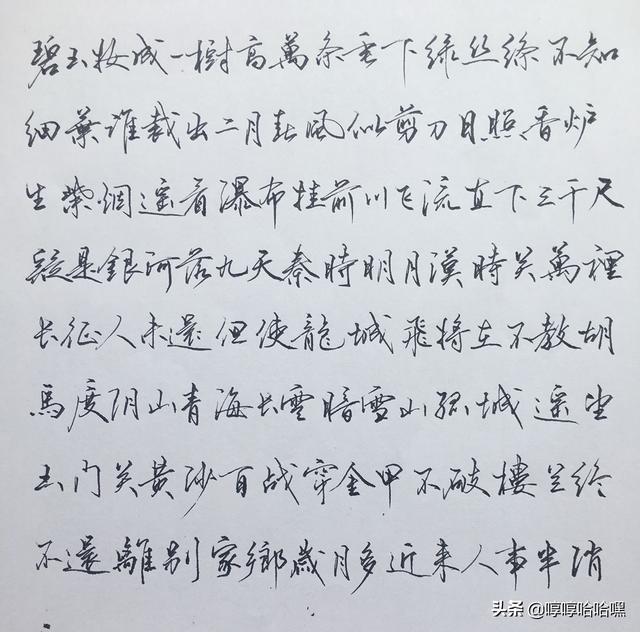 碧玉妆成一樹高萬条垂下绿丝绦不知
细葉谁裁出二月春風似剪刀日照香炉
生紫烟遥看瀑布挂前川飞流直下三千尺
疑是銀河落九天秦時明月漢時关萬裡
长征人未還但使龍城飛將在不教胡
馬度阴山青海长雲暗雪山孤城遥望
玉门关黄沙百战穿金甲不破樓兰终
不還離别家鄉歲月多近来人事半消
头条 @哼哼哈哈嘿